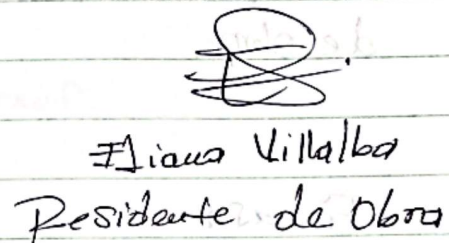 Iliana Villalba
Residente de Obra